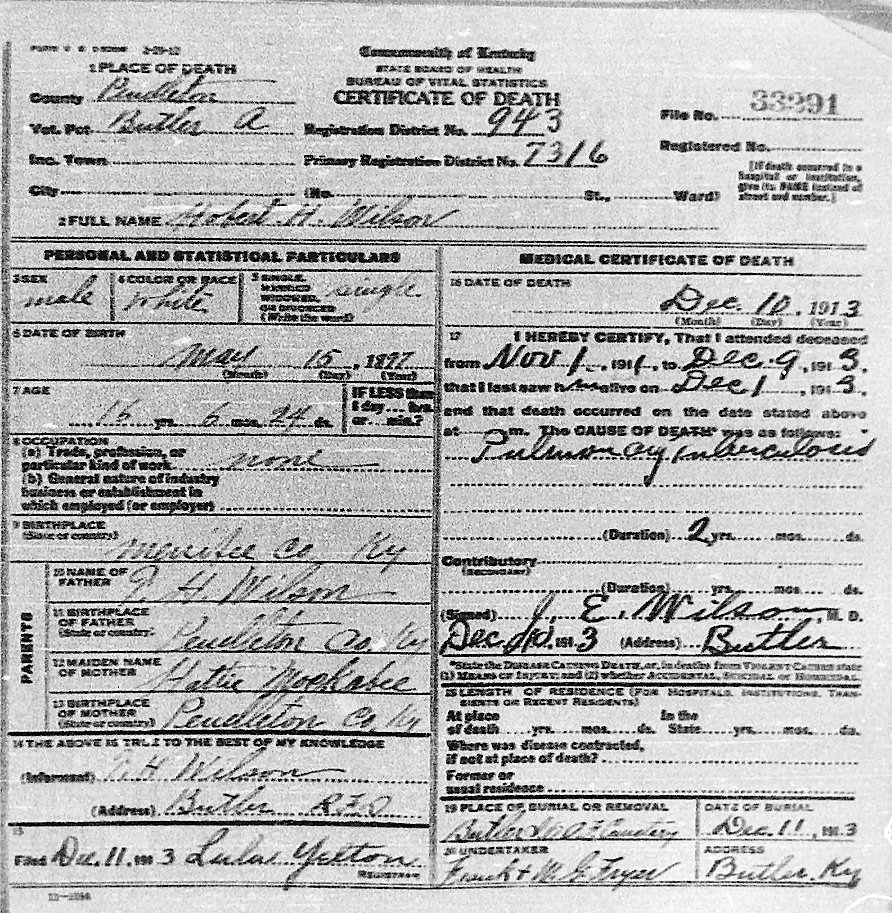 Commonwealth of Kentucky
STATE BOARD OF HEALTH
BUREAU OF VITAL STATISTICS
CERTIFICATE OF DEATH
1 PLACE OF DEATH
County Pendleton
Vot. Pct Butler A
Inc. Town
City
Registration District No. 943
Primary Registration District No. 7316
(No. St., Ward)
File No. 33291
Registered No.
[If death occurred in a
hospital or institution,
give its NAME instead of
street and number.]
2 FULL NAME Hobert H. Wilson
PERSONAL AND STATISTICAL PARTICULARS
3 SEX
male
4 COLOR OR RACE
White
5 SINGLE,
MARRIED
WIDOWED,
OR DIVORCED
(Write the word)
single
6 DATE OF BIRTH
May 15, 1897
(Month) (Day) (Year)
7 AGE
16 yrs. 6 mos. 24 ds.
IF LESS than
1 day... hrs.
or... min.?
8 OCCUPATION
(a) Trade, profession, or
particular kind of work none
(b) General nature of industry
business or establishment in
which employed (or employer)
9 BIRTHPLACE
(State or country)
Menifee Co Ky
PARENTS
10 NAME OF
FATHER
H Wilson
11 BIRTHPLACE
OF FATHER
(State or country)
Pendleton Co. Ky
12 MAIDEN NAME
OF MOTHER
Hattie Mockabee
13 BIRTHPLACE
OF MOTHER
(State or country)
Pendleton Co. Ky
14 THE ABOVE IS TRUE TO THE BEST OF MY KNOWLEDGE
(Informant) H Wilson
(Address) Butler RFD
15
Filed Dec. 11, 1913 Yelton
REGISTRAR
MEDICAL CERTIFICATE OF DEATH
16 DATE OF DEATH
Dec. 10, 1913
(Month) (Day) (Year)
17 I HEREBY CERTIFY, That I attended deceased
from Nov 1, 1911, to Dec. 9, 1913.
that I last saw him alive on Dec 1, 1913.
and that death occurred on the date stated above
at m. The CAUSE OF DEATH* was as follows:
Pulmonary tuberculosis
(Duration) 2 yrs. mos. ds.
Contributory
(SECONDARY)
(Duration) yrs. mos. ds.
(Signed) J. E. Wilson, M. D.
Dec 10, 1913 (Address) Butler
*State the DISEASE CAUSING DEATH, or, in deaths from VIOLENT CAUSES state
(1) MEANS OF INJURY; and (2) whether ACCIDENTAL, SUICIDAL or HOMICIDAL.
18 LENGTH OF RESIDENCE (FOR HOSPITALS, INSTITUTIONS, TRAN-
SIENTS OR RECENT RESIDENTS)
At place In the
of death yrs. mos. ds. State yrs. mos. ds.
Where was disease contracted,
if not at place of death?
Former or
usual residence
19 PLACE OF BURIAL OR REMOVAL
Butler Cemetery
DATE OF BURIAL
Dec. 11, 1913
20 UNDERTAKER
Fryer
ADDRESS
Butler. Ky